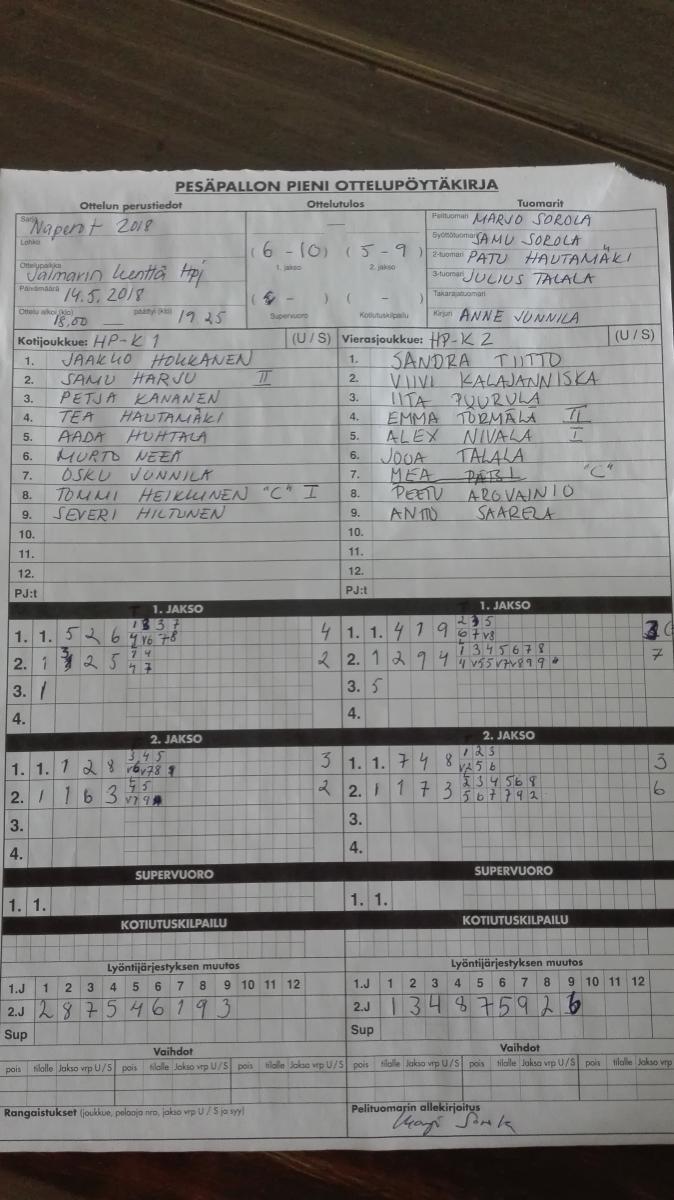 PESÄPALLON PIENI OTTELUPÖYTÄKIRJA
Ottelun perustiedot Ottelutulos Tuomarit
Sarja Naperot 2018
Lohko
Ottelupaikka Valmarin kenttä Hpj
Päivämäärä 14.5. 2018
Ottelu alkoi (klo) 18.00 päättyi (klo) 19 25
(6 - 10) (5 - 9)
1. jakso 2. jakso
( - ) ( - )
Supervuoro Kotiutuskilpailu
Pelituomari MARJO SOROLA
Syöttötuomari SAMU SOROLA
2-tuomari PATU HAUTAMÄKI
3-tuomari JULIUS TALALA
Takarajatuomari
Kirjuri ANNE JUNNILA
Kotijoukkue: HP-K 1 (U / S)
1. JAAKKO HOKKANEN
2. SAMU HARJU II
3. PETJA KANANEN
4. TEA HAUTAMÄKI
5. AADA HUHTALA
6. MURTO NEEA
7. OSKU JUNNILA
8. TOMMI HEIKKINEN "C" I
9. SEVERI HILTUNEN
10.
11.
12.
PJ:t
Vierasjoukkue: HP-K 2 (U / S)
1. SANDRA TIITTO
2. VIIVI KALAJANNISKA
3. IITA PUURULA
4. EMMA TÖRMÄLÄ II
5. ALEX NIVALA I
6. JOOA TALALA
7. MEA "C"
8. PEETU AROVAINIO
9. ANTTO SAARELA
10.
11.
12.
PJ:t
1. JAKSO 1. JAKSO
1. 1. 5 2 6 4
2. 1 2 5 2
3. 1
4.
1. 1. 4 7 9
2. 1 2 9 4 1 3 4 5 6 7 8 7
3. 5
4.
2. JAKSO 2. JAKSO
1. 1. 1 2 8 3 4 5 3
2. 1 1 6 3 2
3.
4.
1. 1. 7 4 8 1 2 3 3
2. 1 1 7 3 2 3 4 5 6 8 6
5 6 7 7 9 2
3.
4.
SUPERVUORO SUPERVUORO
1. 1. 1. 1.
KOTIUTUSKILPAILU KOTIUTUSKILPAILU
Lyöntijärjestyksen muutos Lyöntijärjestyksen muutos
1.J 1 2 3 4 5 6 7 8 9 10 11 12 1.J 1 2 3 4 5 6 7 8 9 10 11 12
2.J 2 8 7 5 4 6 1 9 3 2.J 1 3 4 8 7 5 9 2 6
Sup Sup
Vaihdot Vaihdot
pois tilalle Jakso vrp U / S pois tilalle Jakso vrp U / S pois tilalle Jakso vrp U / S pois tilalle Jakso vrp U / S pois tilalle Jakso vrp U / S pois tilalle Jakso vrp
Rangaistukset (joukkue, pelaaja nro, jakso vrp U / S ja syy) Pelituomarin allekirjoitus